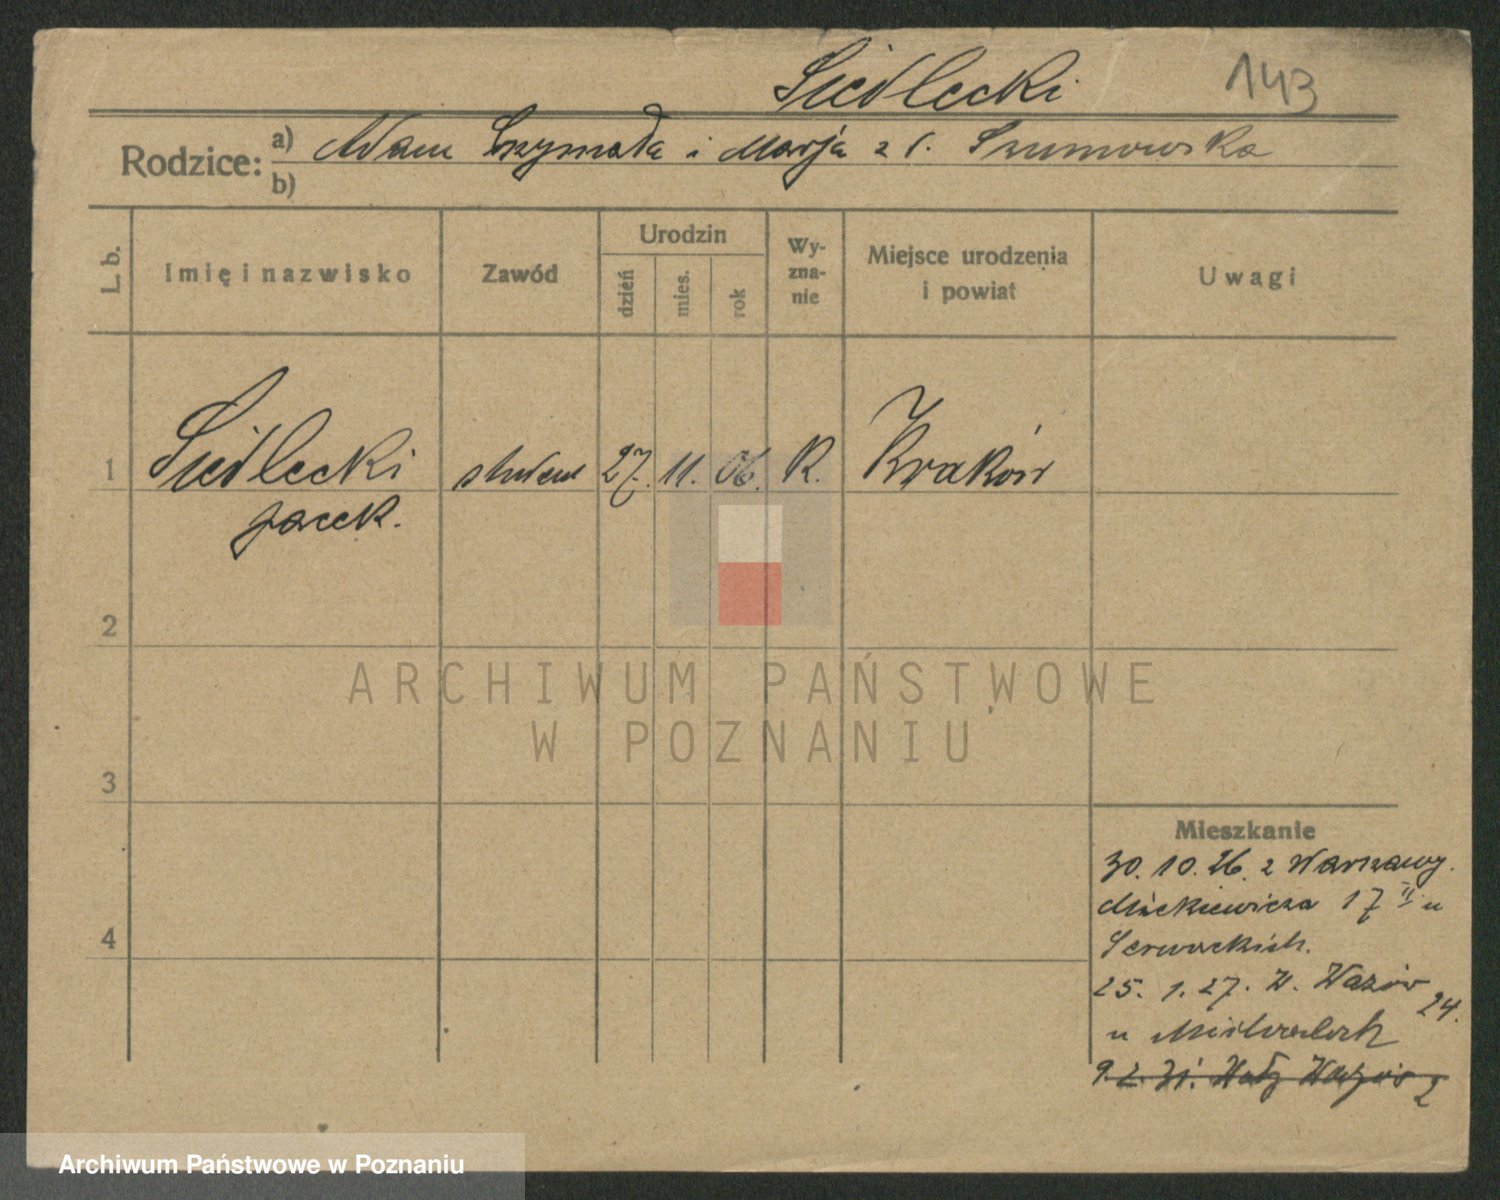 Siedlecki 143
Rodzice: a) Adam Grzymała i Marja z d. Szumowska
b)
L. b. Imię i nazwisko Zawód Urodzin dzień mies. rok Wyzna-nie Miejsce urodzenia i powiat Uwagi
1 Siedlecki student 27. 11. 06. R. Kraków
Jacek.
2
ARCHIWUM PAŃSTWOWE
W POZNANIU
3
Mieszkanie
30. 10. 26. z Warszawy.
Mickiewicza 17 II u
4
25. 1. 27. W. Wazów 24.
u
9. 2. 31. Wały Wazów 2
Archiwum Państwowe w Poznaniu